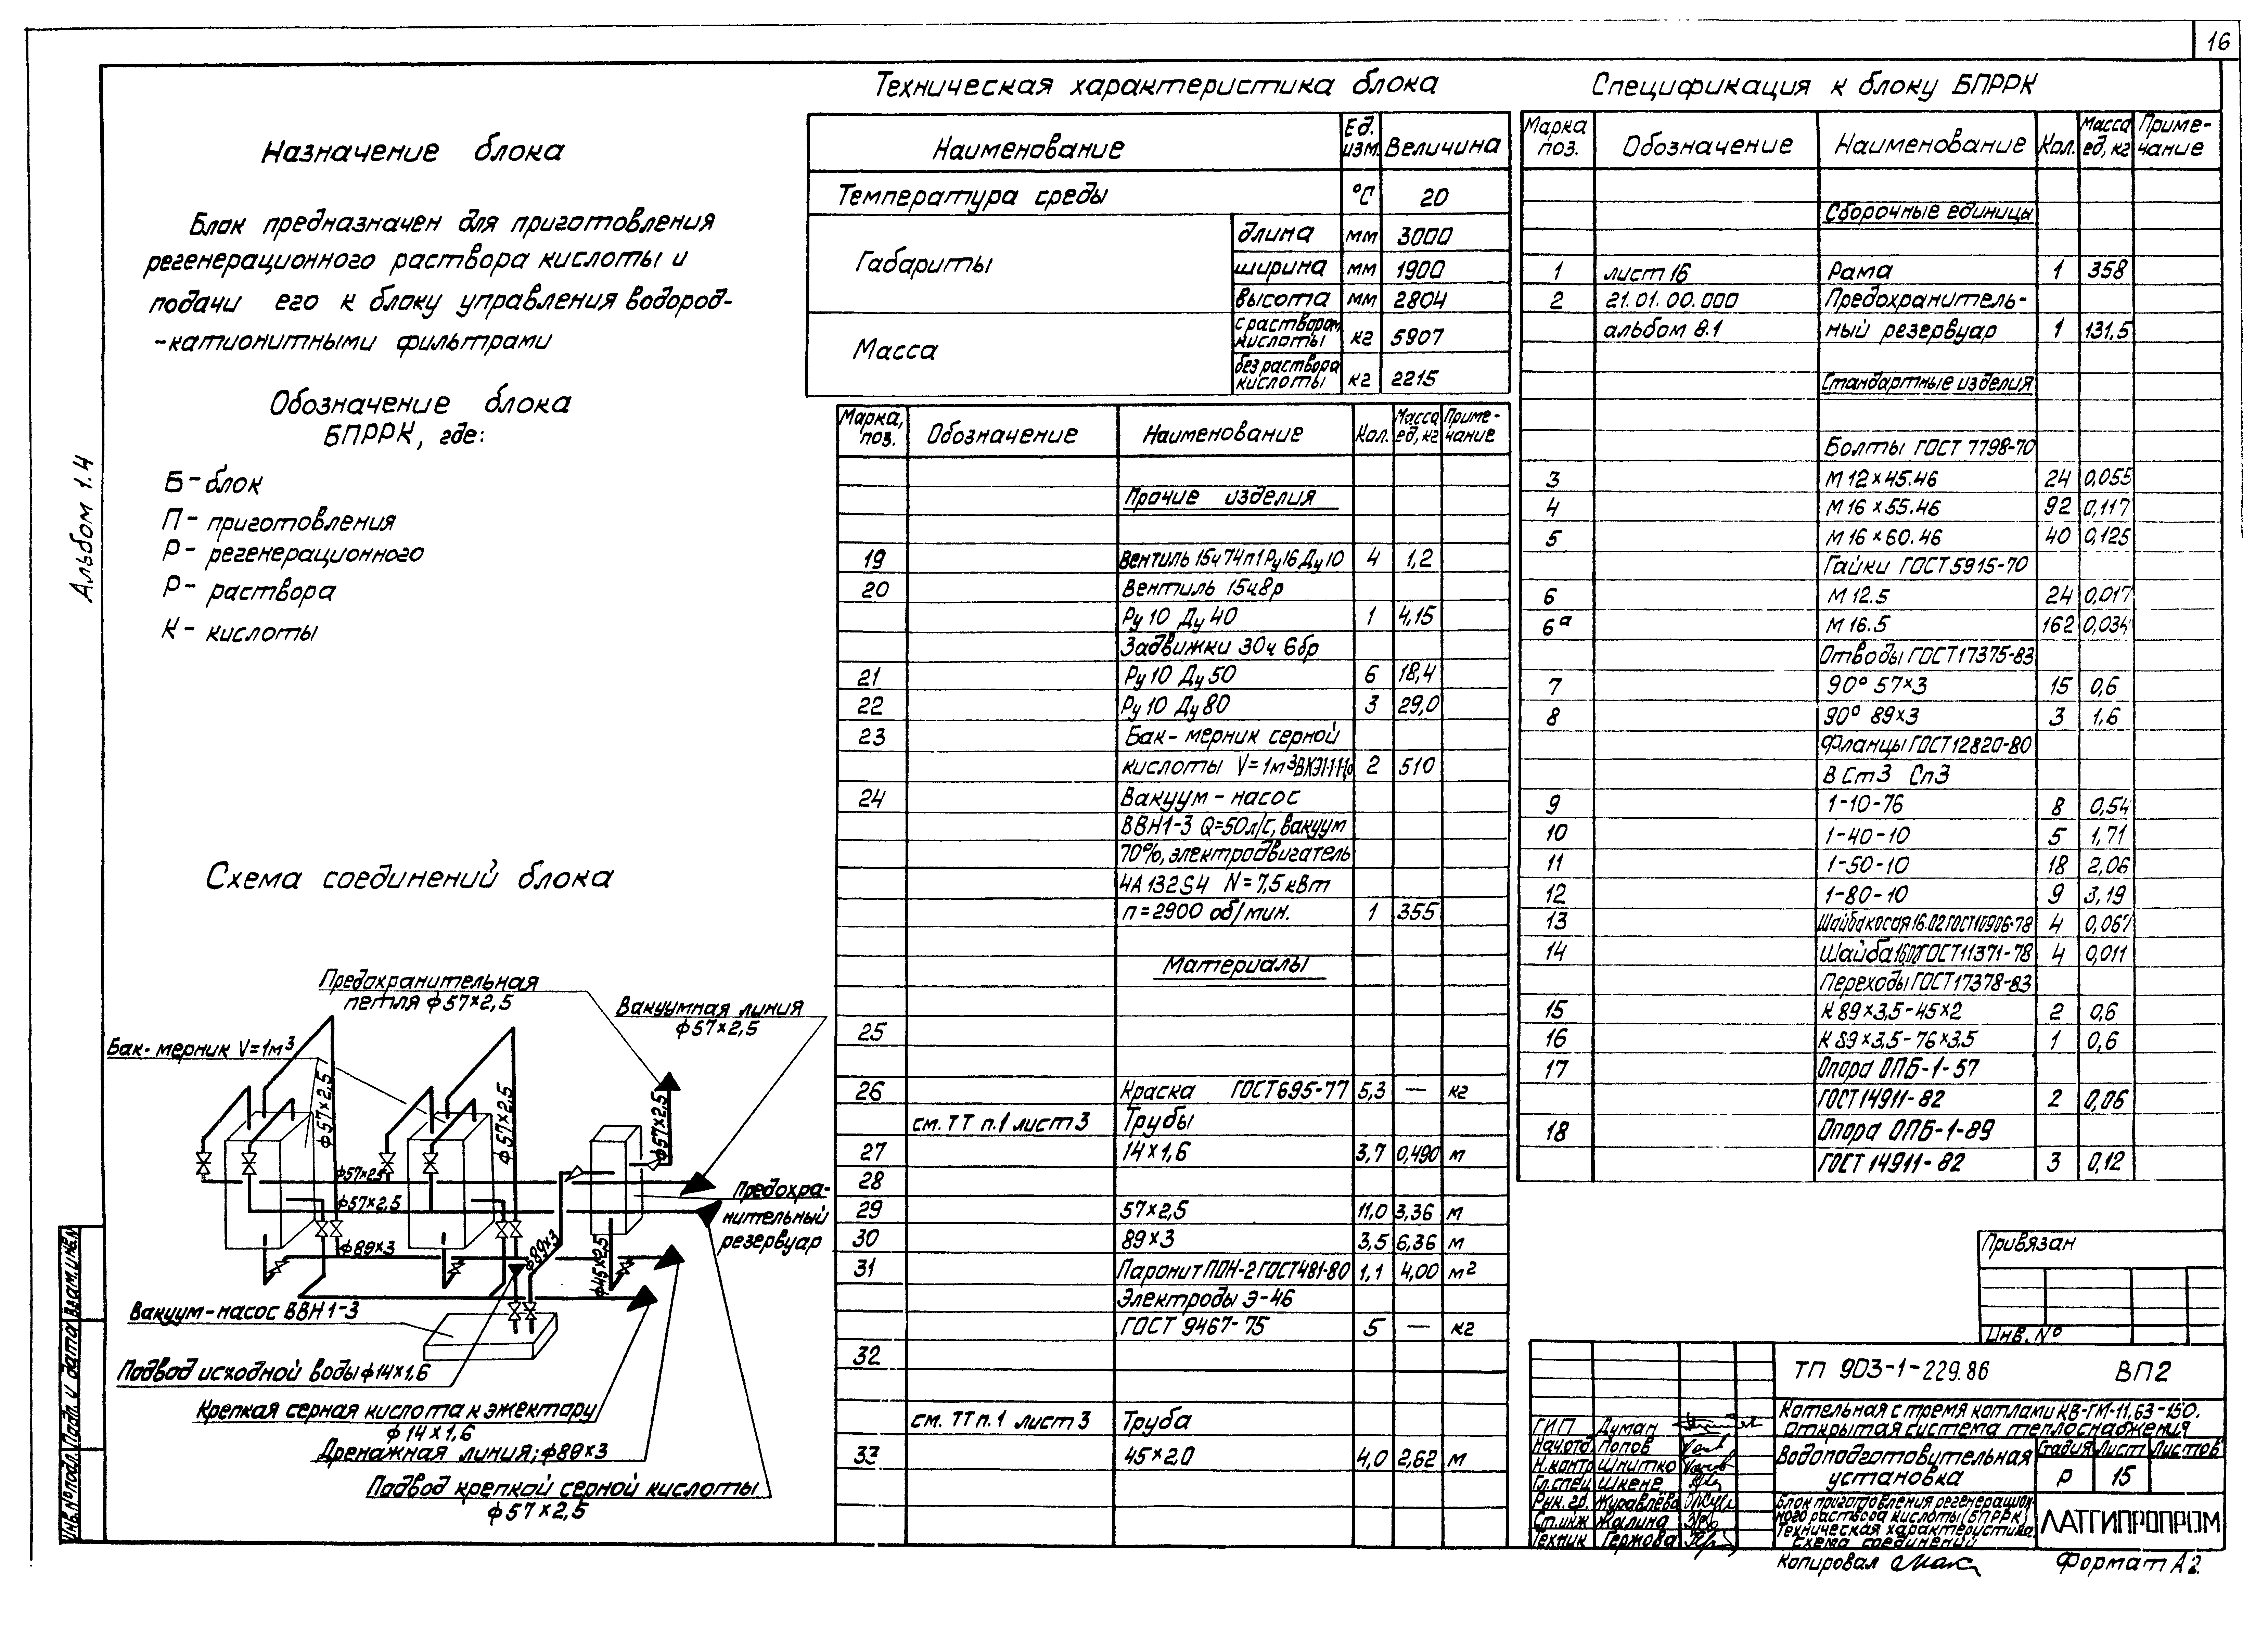 16
Альбом 1.4
Назначение блока
Блок предназначен для приготовления
регенерационного раствора кислоты и
подачи его к блоку управления водород-
-катионитными фильтрами
Обозначение блока
БПРРК, где:
Б- блок
П- приготовления
Р- регенерационного
Р- раствора
К- кислоты
Схема соединений блока
Предохранительная
петля ф57×2,5
Вакуумная линия
ф57×2,5
Бак-мерник V=1м³
ф57×2,5
ф57×2,5
ф57×2,5
ф57×2,5
ф57×2,5
ф89×3
ф89×3
ф45×2,5
Предохра-
нительный
резервуар
Вакуум-насос ВВН1-3
Подвод исходной воды ф14×1,6
Крепкая серная кислота к эжектору
ф14×1,6
Дренажная линия; ф89×3
Подвод крепкой серной кислоты
ф57×2,5
Техническая характеристика блока
Наименование Ед. изм. Величина
Температура среды °С 20
Габариты длина мм 3000
ширина мм 1900
высота мм 2804
Масса с раствором кислоты кг 5907
без раствора кислоты кг 2215
Марка, поз. Обозначение Наименование Кол. Масса ед, кг Приме-чание
Прочие изделия
19 Вентиль 15ч74п1 Ру16 Ду10 4 1,2
20 Вентиль 15ч8р
Ру10 Ду40 1 4,15
Задвижки 30ч6бр
21 Ру10 Ду50 6 18,4
22 Ру10 Ду80 3 29,0
23 Бак-мерник серной
кислоты V=1м³ 2 510
24 Вакуум-насос
ВВН1-3 Q=50л/с, вакуум
70%, электродвигатель
4А132S4 N=7,5кВт
п=2900 об/мин. 1 355
Материалы
25
26 Краска ГОСТ695-77 5,3 — кг
см. ТТ п.1 лист 3 Трубы
27 14×1,6 3,7 0,490 м
28
29 57×2,5 11,0 3,36 м
30 89×3 3,5 6,36 м
31 Паронит ПОН-2 ГОСТ481-80 1,1 4,00 м²
Электроды Э-46
ГОСТ 9467-75 5 — кг
32
см. ТТ п.1 лист 3 Труба
33 45×2,0 4,0 2,62 м
Спецификация к блоку БПРРК
Марка поз. Обозначение Наименование Кол. Масса ед, кг Приме-чание
Сборочные единицы
1 лист 16 Рама 1 358
2 21.01.00.000 Предохранитель-
альбом 8.1 ный резервуар 1 131,5
Стандартные изделия
Болты ГОСТ 7798-70
3 М12×45.46 24 0,055
4 М16×55.46 92 0,117
5 М16×60.46 40 0,125
Гайки ГОСТ5915-70
6 М12.5 24 0,017
6а М16.5 162 0,034
Отводы ГОСТ17375-83
7 90° 57×3 15 0,6
8 90° 89×3 3 1,6
Фланцы ГОСТ12820-80
ВСт3 Сп3
9 1-10-76 8 0,54
10 1-40-10 5 1,71
11 1-50-10 18 2,06
12 1-80-10 9 3,19
13 Шайба косая 16.02 ГОСТ10906-78 4 0,067
14 Шайба ГОСТ11371-78 4 0,011
Переходы ГОСТ17378-83
15 К89×3,5-45×2 2 0,6
16 К89×3,5-76×3,5 1 0,6
17 Опора ОПБ-1-57
ГОСТ14911-82 2 0,06
18 Опора ОПБ-1-89
ГОСТ14911-82 3 0,12
Привязан
Инв. №
ТП 903-1-229.86 ВП2
Котельная с тремя котлами КВ-ГМ-11,63-150.
Открытая система теплоснабжения
Водоподготовительная
установка
Стадия Лист Листов
Р 15
Блок приготовления регенерацион-
ного раствора кислоты (БПРРК)
Техническая характеристика.
Схема соединений
ЛАТГИПРОПРОМ
ГИП Думан
Нач.отд. Попов
Н.контр Шнитко
Гл.спец Шкене
Рук. гр. Журавлёва
Ст.инж Жалина
Техник Гержова
Копировал
Формат А2
Инв.№подл. Подп. и дата Взам.инв.№